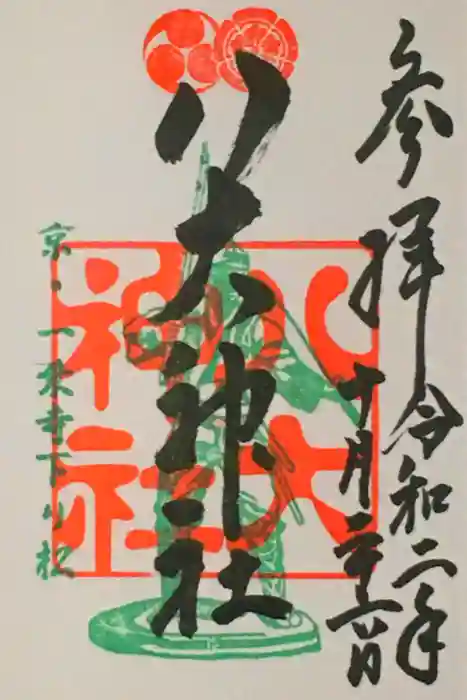 参拝 令和二年
十月二十六日
八大神社
八大
神社
京・一乗寺下り松